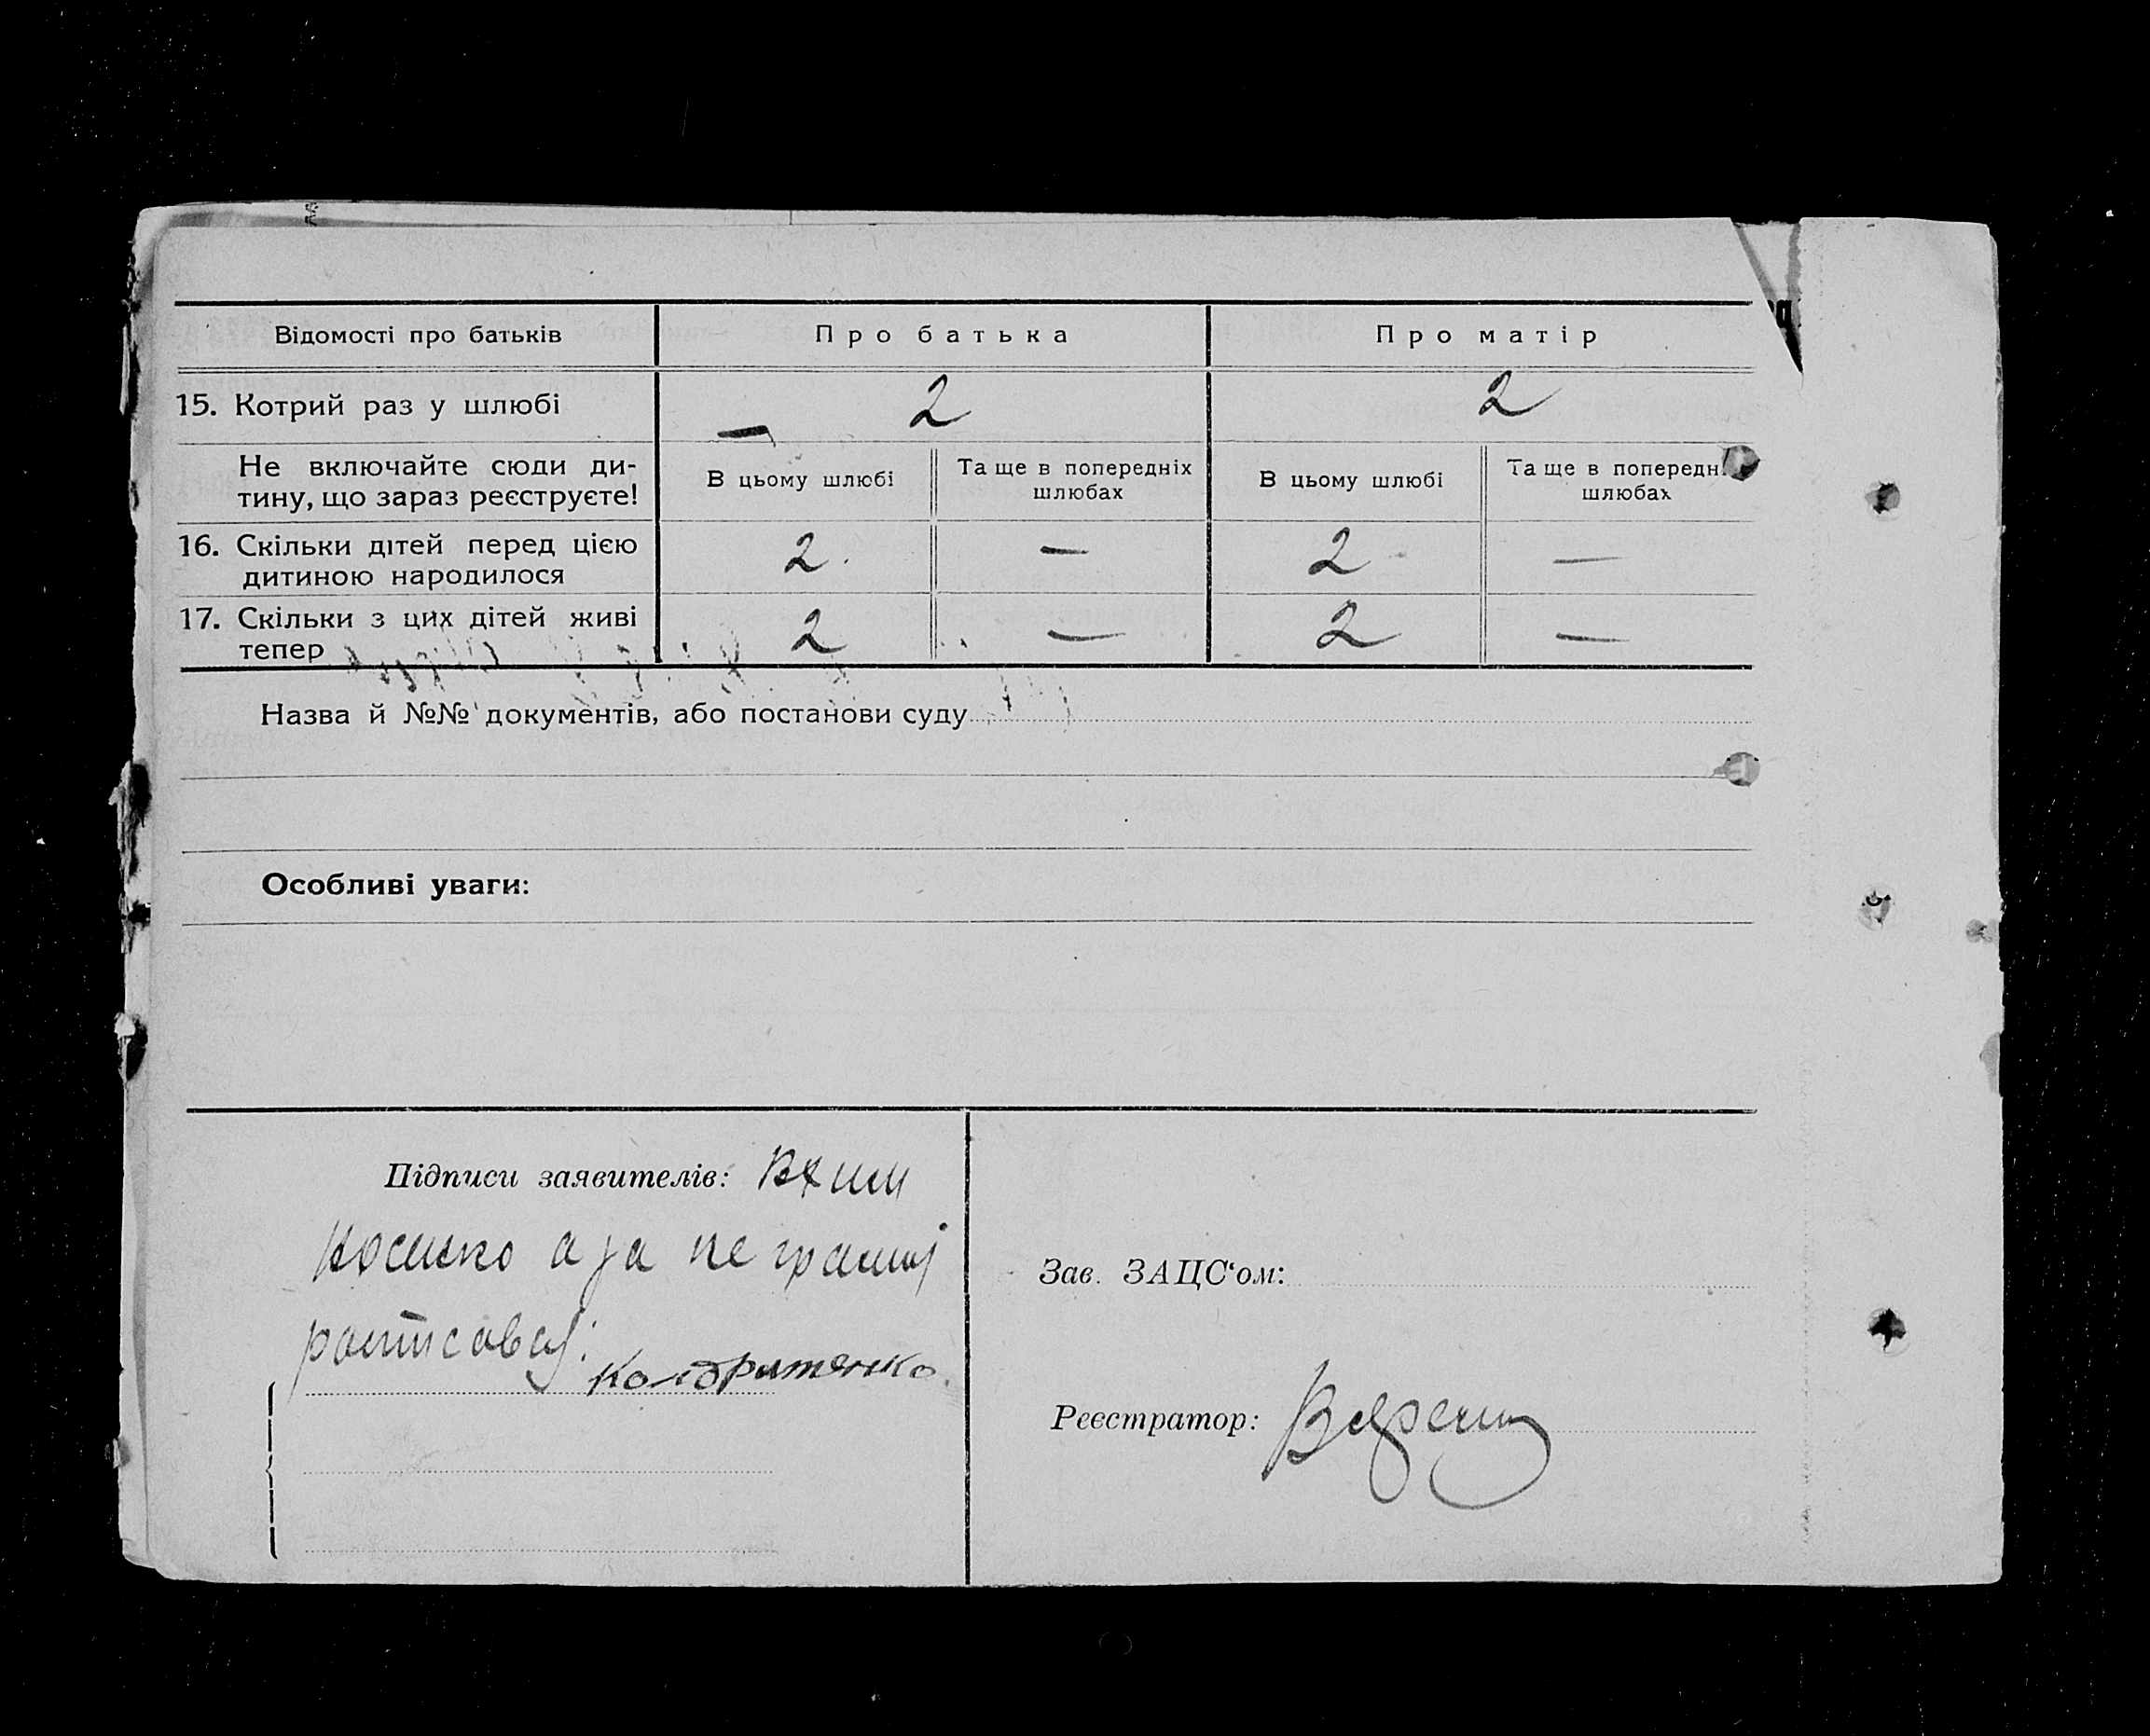 Відомості про батьків Про батька Про матір
15. Котрий раз у шлюбі 2 2
Не включайте сюди ди-
тину, що зараз реєструєте!
В цьому шлюбі
Та ще в попередніх
шлюбах
В цьому шлюбі
Та ще в попередн
шлюбах
16. Скільки дітей перед цією
дитиною народилося
2. — 2 —
17. Скільки з цих дітей живі
тепер
2 — 2 —
Назва й №№ документів, або постанови суду
Особливі уваги:
Підписи заявителів:
а за не грамот
Кондратенко.
Зав. ЗАЦС‘ом:
Реєстратор: